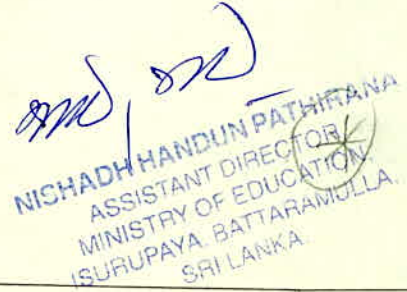 NISHADH HANDUN PATHIRANA
ASSISTANT DIRECTOR,
MINISTRY OF EDUCATION,
ISURUPAYA, BATTARAMULLA.
SRI LANKA.